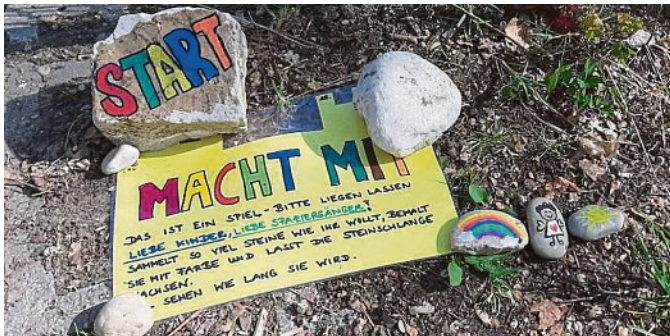 START
MACHT MIT
DAS IST EIN SPIEL - BITTE LIEGEN LASSEN
LIEBE KINDER, LIEBE SPAZIERGÄNGER!
SAMMELT SO VIEL STEINE WIE IHR WOLLT, BEMALT
SIE MIT FARBE UND LASST DIE STEINSCHLANGE
WACHSEN.
SEHEN WIE LANG SIE WIRD.